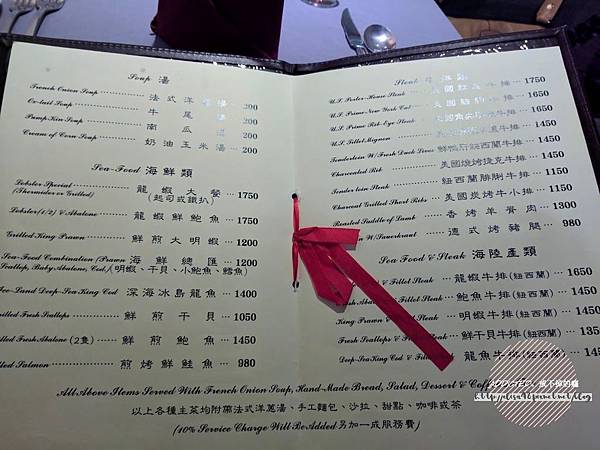 Soup 湯
French Onion Soup 法式洋蔥湯 200
Ox-tail Soup 牛尾湯 200
Pump Kin Soup 南瓜湯 200
Cream of Corn Soup 奶油玉米湯 200
Sea-Food 海鮮類
Lobster Special 龍蝦大餐 1750
(Thermidor or Grilled) (起司或鐵扒)
Lobster(1/2) & Abalone 龍蝦鮮鮑魚 1750
Grilled King Prawn 鮮煎大明蝦 1200
Sea-Food Combination (Prawn 海鮮總匯 1200
Scallop, Baby Abalone, Cod) (明蝦、干貝、小鮑魚、鱈魚)
Ice-Land Deep-Sea King Cod 深海冰島龍魚 1400
Grilled Fresh Scallops 鮮煎干貝 1050
Grilled Fresh Abalone (2隻) 鮮煎鮑魚 1450
Grilled Salmon 煎烤鮮鮭魚 980
Steak 牛排類
U.S. Porter-House Steak 美國紅屋牛排 1750
U.S. Prime New-York Cut 美國紐約牛排 1650
U.S. Prime Rib-Eye Steak 1650
U.S. Fillet Mignon 牛排 1450
Tenderloin W/Fresh Duck Liver 鮮鴨肝紐西蘭牛排 1450
Charcoaled Rib 美國燒烤捷克牛排 1450
Tenderloin Steak 紐西蘭腓脷牛排 1150
Charcoal Grilled Short Ribs 美國炭烤牛小排 1150
Roasted Saddle of Lamb 香烤羊脊肉 1300
W/Sauerkraut 德式烤豬腿 980
Sea Food & Steak 海陸產類
& Fillet Steak 龍蝦牛排(紐西蘭) 1650
Fresh Abalone & Fillet Steak 鮑魚牛排(紐西蘭) 1450
King Prawn & Steak 明蝦牛排(紐西蘭) 1450
Fresh Scallops & Steak 鮮干貝牛排(紐西蘭) 1350
Deep-Sea King Cod & Fillet Steak 龍魚牛排(紐西蘭) 1450
All Above Items Served With French Onion Soup, Hand-Made Bread, Salad, Dessert & Coffee
以上各種主菜均附帶法式洋蔥湯、手工麵包、沙拉、甜點、咖啡或茶
(10% Service Charge Will Be Added 另加一成服務費)